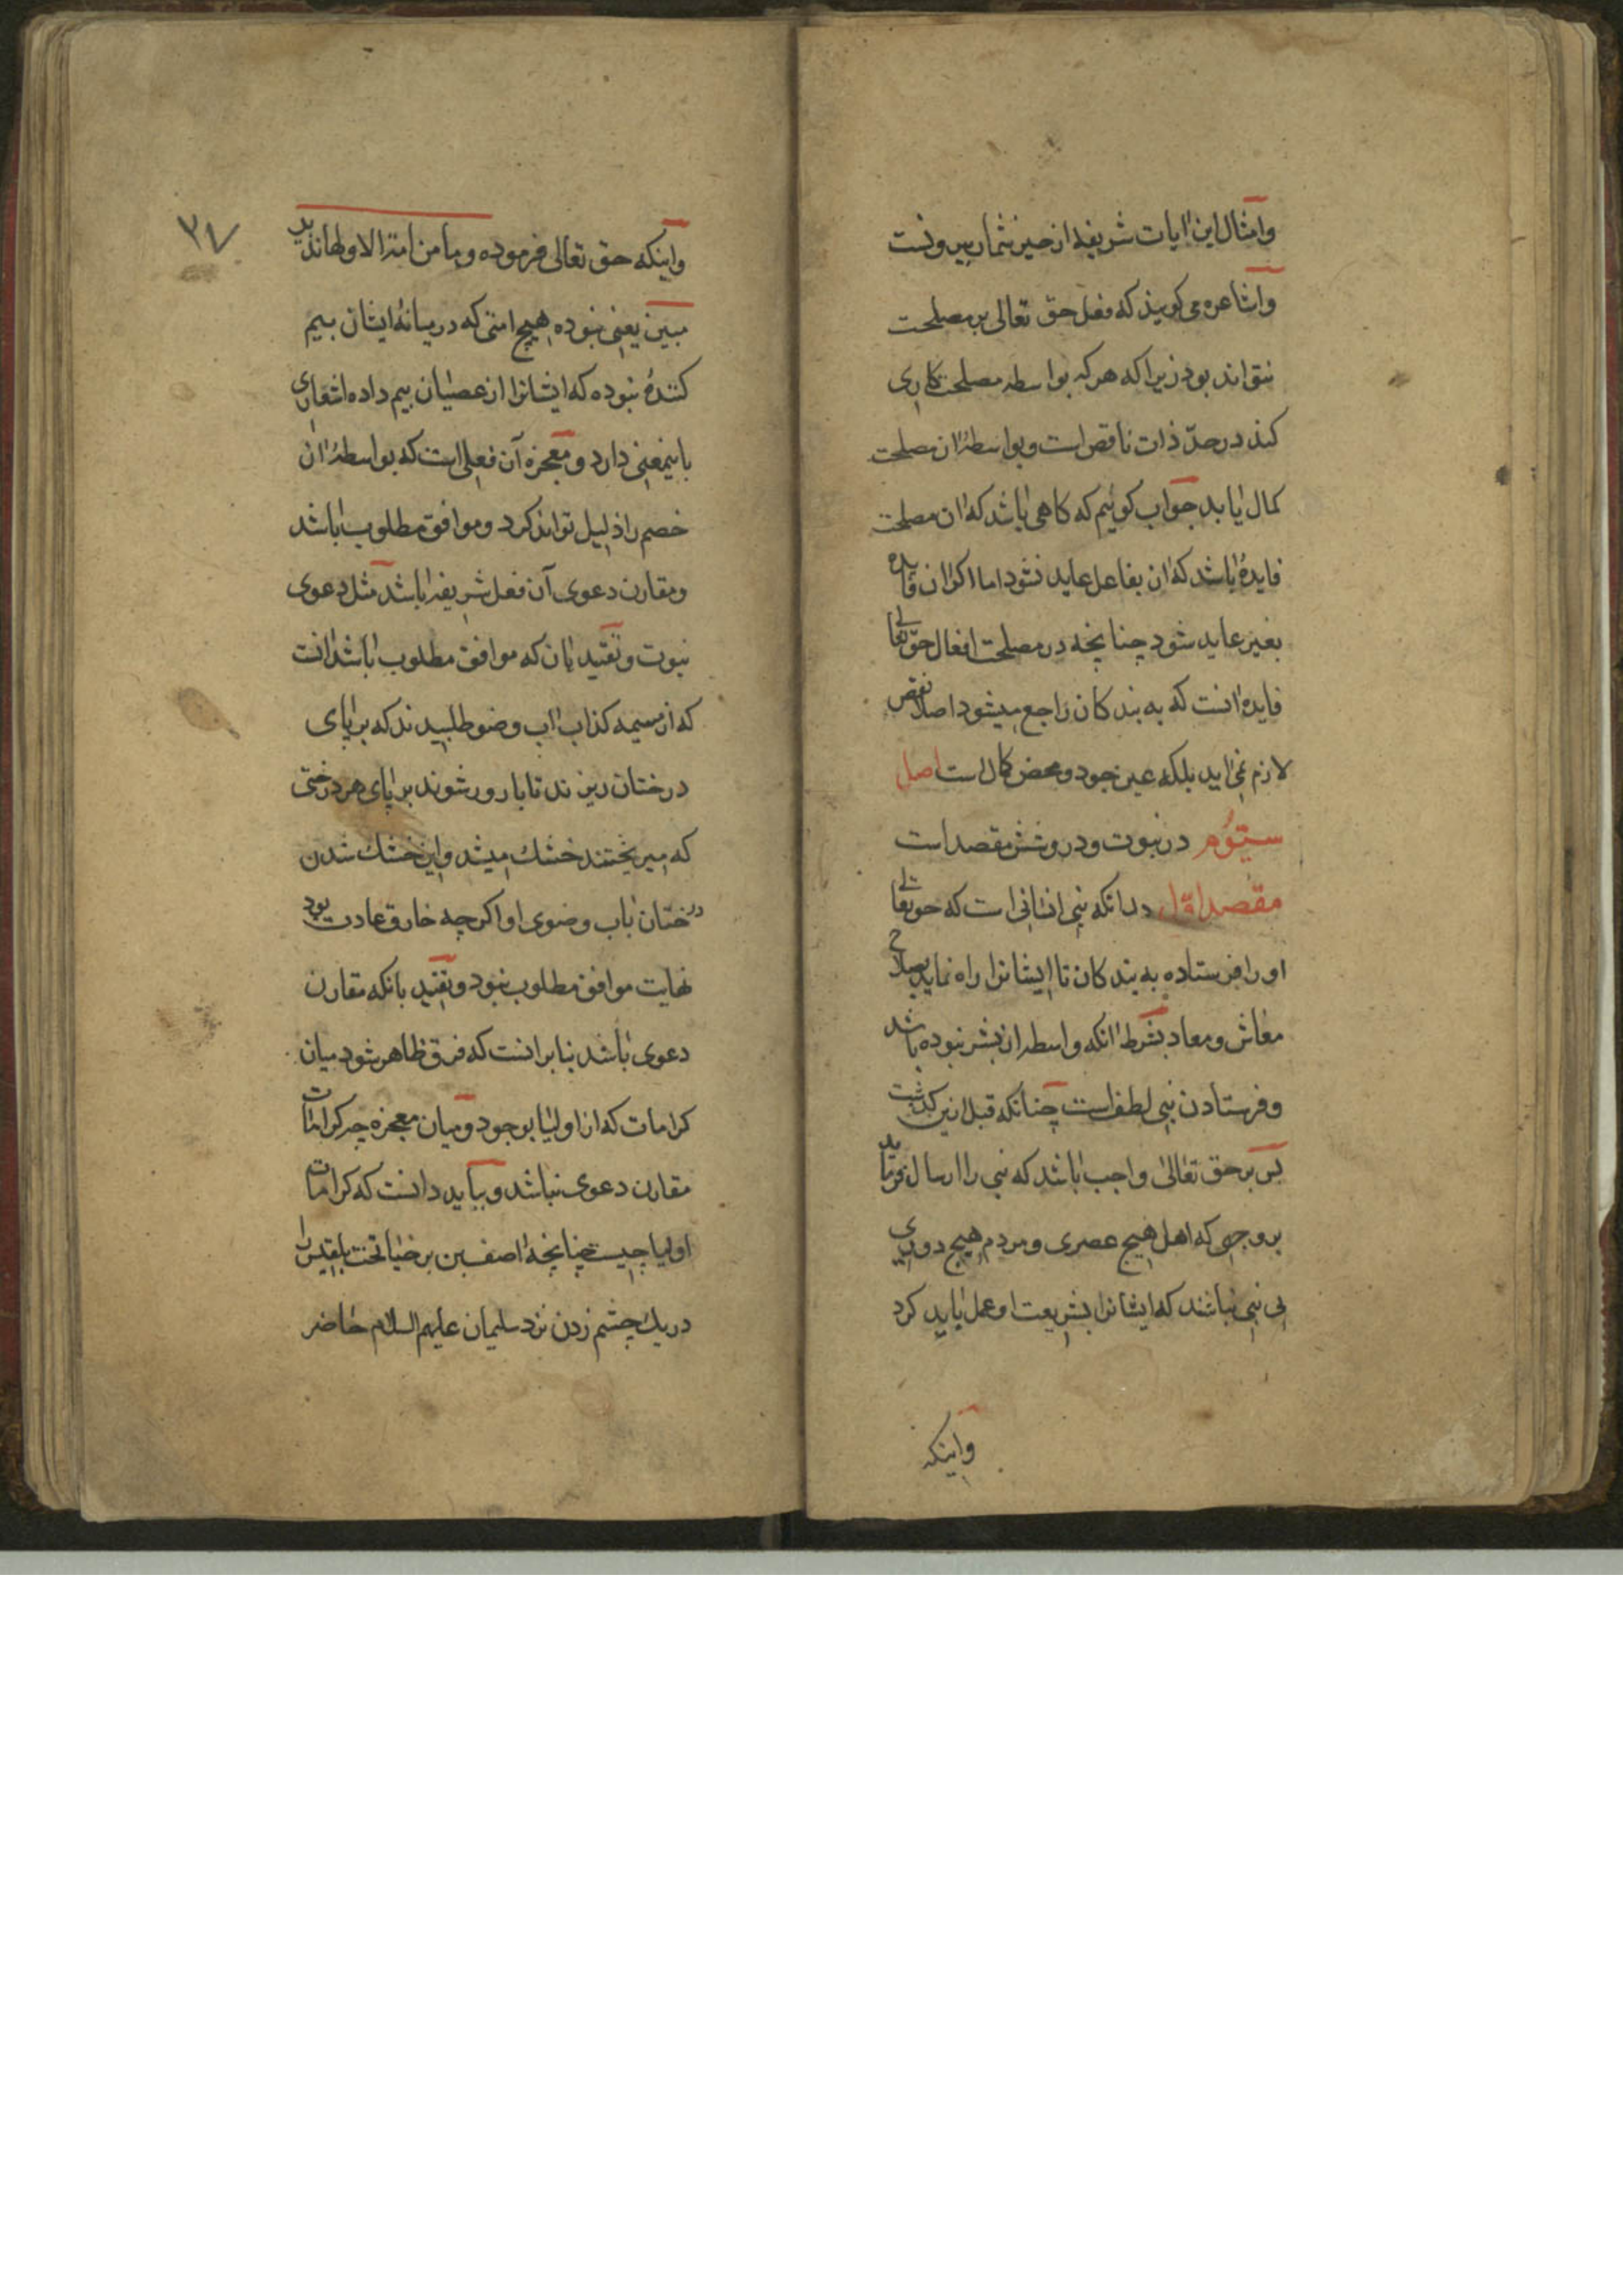 وامثال این ایات شریفه از حیز شمار بیرونست
واشاعره می کویند که فعل حق تعالی بر مصلحت
نتواند بود زیرا که هر که بواسطه مصلحت کاری
کند در حدّ ذات ناقص است و بواسطهٔ ان مصلحت
کمال یابد جواب کوئیم که کاهی باشد که ان مصلحت
فایدهٔ باشد که ان بفاعل عاید نشود اما اکر ان فایده
بغیر عاید شود چنانچه در مصلحت افعال حق تعالی
فایده انست که به بندکان راجع میشود اصلا نقص
لازم نمی اید بلکه عین جود و محض کمال است اصل
سیّوم در نبوت و درو شش مقصد است
مقصد اوّل در انکه نبی انسانی است که حق تعالی
او را فرستاده به بندکان تا ایشانرا راه نماید بصلاح
معاش و معاد بشرط انکه واسطه ان بشر نبوده باشد
و فرستادن نبی لطف است چنانکه قبل ازین کذشت
پس بر حق تعالی واجب باشد که نبی را ارسال فرماید
بر وجهی که اهل هیچ عصری و مردم هیچ دوری
بی نبی نباشند که ایشانرا بشریعت او عمل باید کرد
واینکه
۳۷
واینکه حق تعالی فرموده وما من امة الا ولها نذیر
مبین یعنی نبوده هیچ امتی که در میانهٔ ایشان بیم
کنندهٔ نبوده که ایشانرا از عصیان بیم داده اشعاری
باینمعنی دارد و معجزه آن فعلی است که بواسطهٔ ان
خصم را ذلیل تواند کرد و موافق مطلوب باشد
و مقارن دعوی آن فعل شریفه باشد مثل دعوی
نبوت و تقیید بان که موافق مطلوب باشد انست
که از مسیمه کذاب اب وضو طلبیدند که بر پای
درختان ریزند تا بارور شوند بر پای هر درختی
که میریختند خشك میشد و این خشك شدن
درختان باب وضوی او اکرچه خارق عادت بود
نهایت موافق مطلوب نبود و تقیید بانکه مقارن
دعوی باشد بنا بر انست که فرق ظاهر شود میان
کرامات که از اولیا بوجود و میان معجزه چه کرامات
مقارن دعوی نباشد و بباید دانست که کرامات
اولیا چیست چنانچه اصف بن برخیا تخت بلقیس را
در یك چشم زدن نزد سلیمان علیهم السلام حاضر